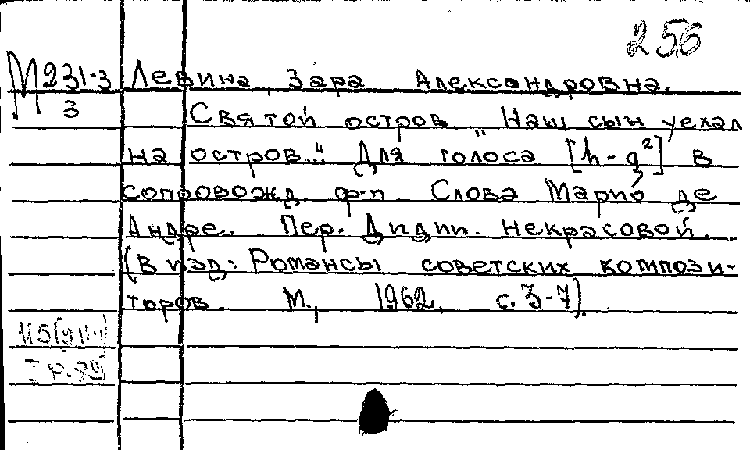 256
М231-3 Левина, Зара Александровна.
3 Святой остров „Наш сын уехал
на остров.." Для голоса [h-g²] в
сопровожд ф-п. Слова Марио де
Андре.. Пер. Лидии. Некрасовой.
(В изд: Романсы советских компози-
торов. М., 1962, с. 3-7).